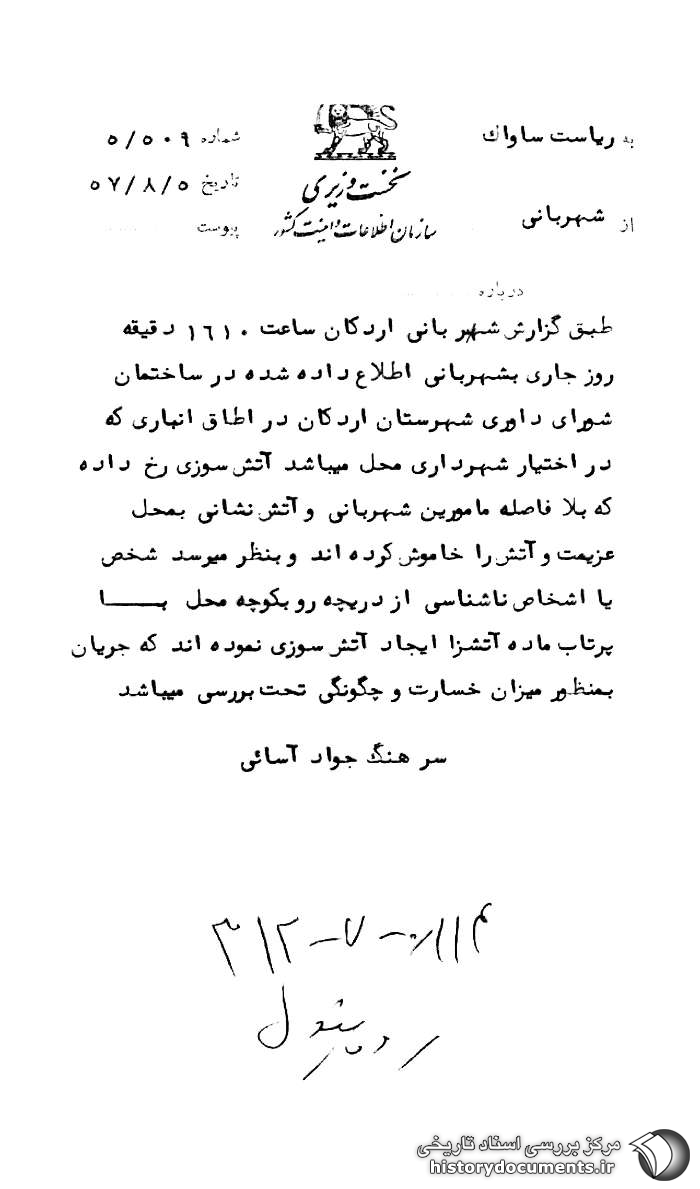 به ریاست ساواک
شماره ۵/۵۰۹
نخست وزیری
تاریخ ۵۷/۸/۵
از شهربانی
سازمان اطلاعات و امنیت کشور
پیوست
درباره
طبق گزارش شهربانی اردکان ساعت ۱٦۱۰ دقیقه
روز جاری بشهربانی اطلاع داده شده در ساختمان
شورای داوری شهرستان اردکان در اطاق انباری که
در اختیار شهرداری محل میباشد آتش سوزی رخ داده
که بلا فاصله مامورین شهربانی و آتش نشانی بمحل
عزیمت و آتش را خاموش کرده اند و بنظر میرسد شخص
یا اشخاص ناشناسی از دریچه رو بکوچه محل بـــا
پرتاب ماده آتشزا ایجاد آتش سوزی نموده اند که جریان
بمنظور میزان خسارت و چگونگی تحت بررسی میباشد
سرهنگ جواد آسائی
۳۱۲-۷-
مرکز بررسی اسناد تاریخی
historydocuments.ir